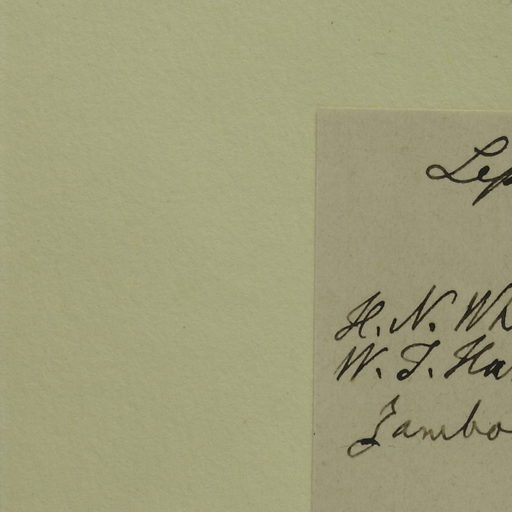 Lep
H. N. Wh
W. T. Ha
Zambo